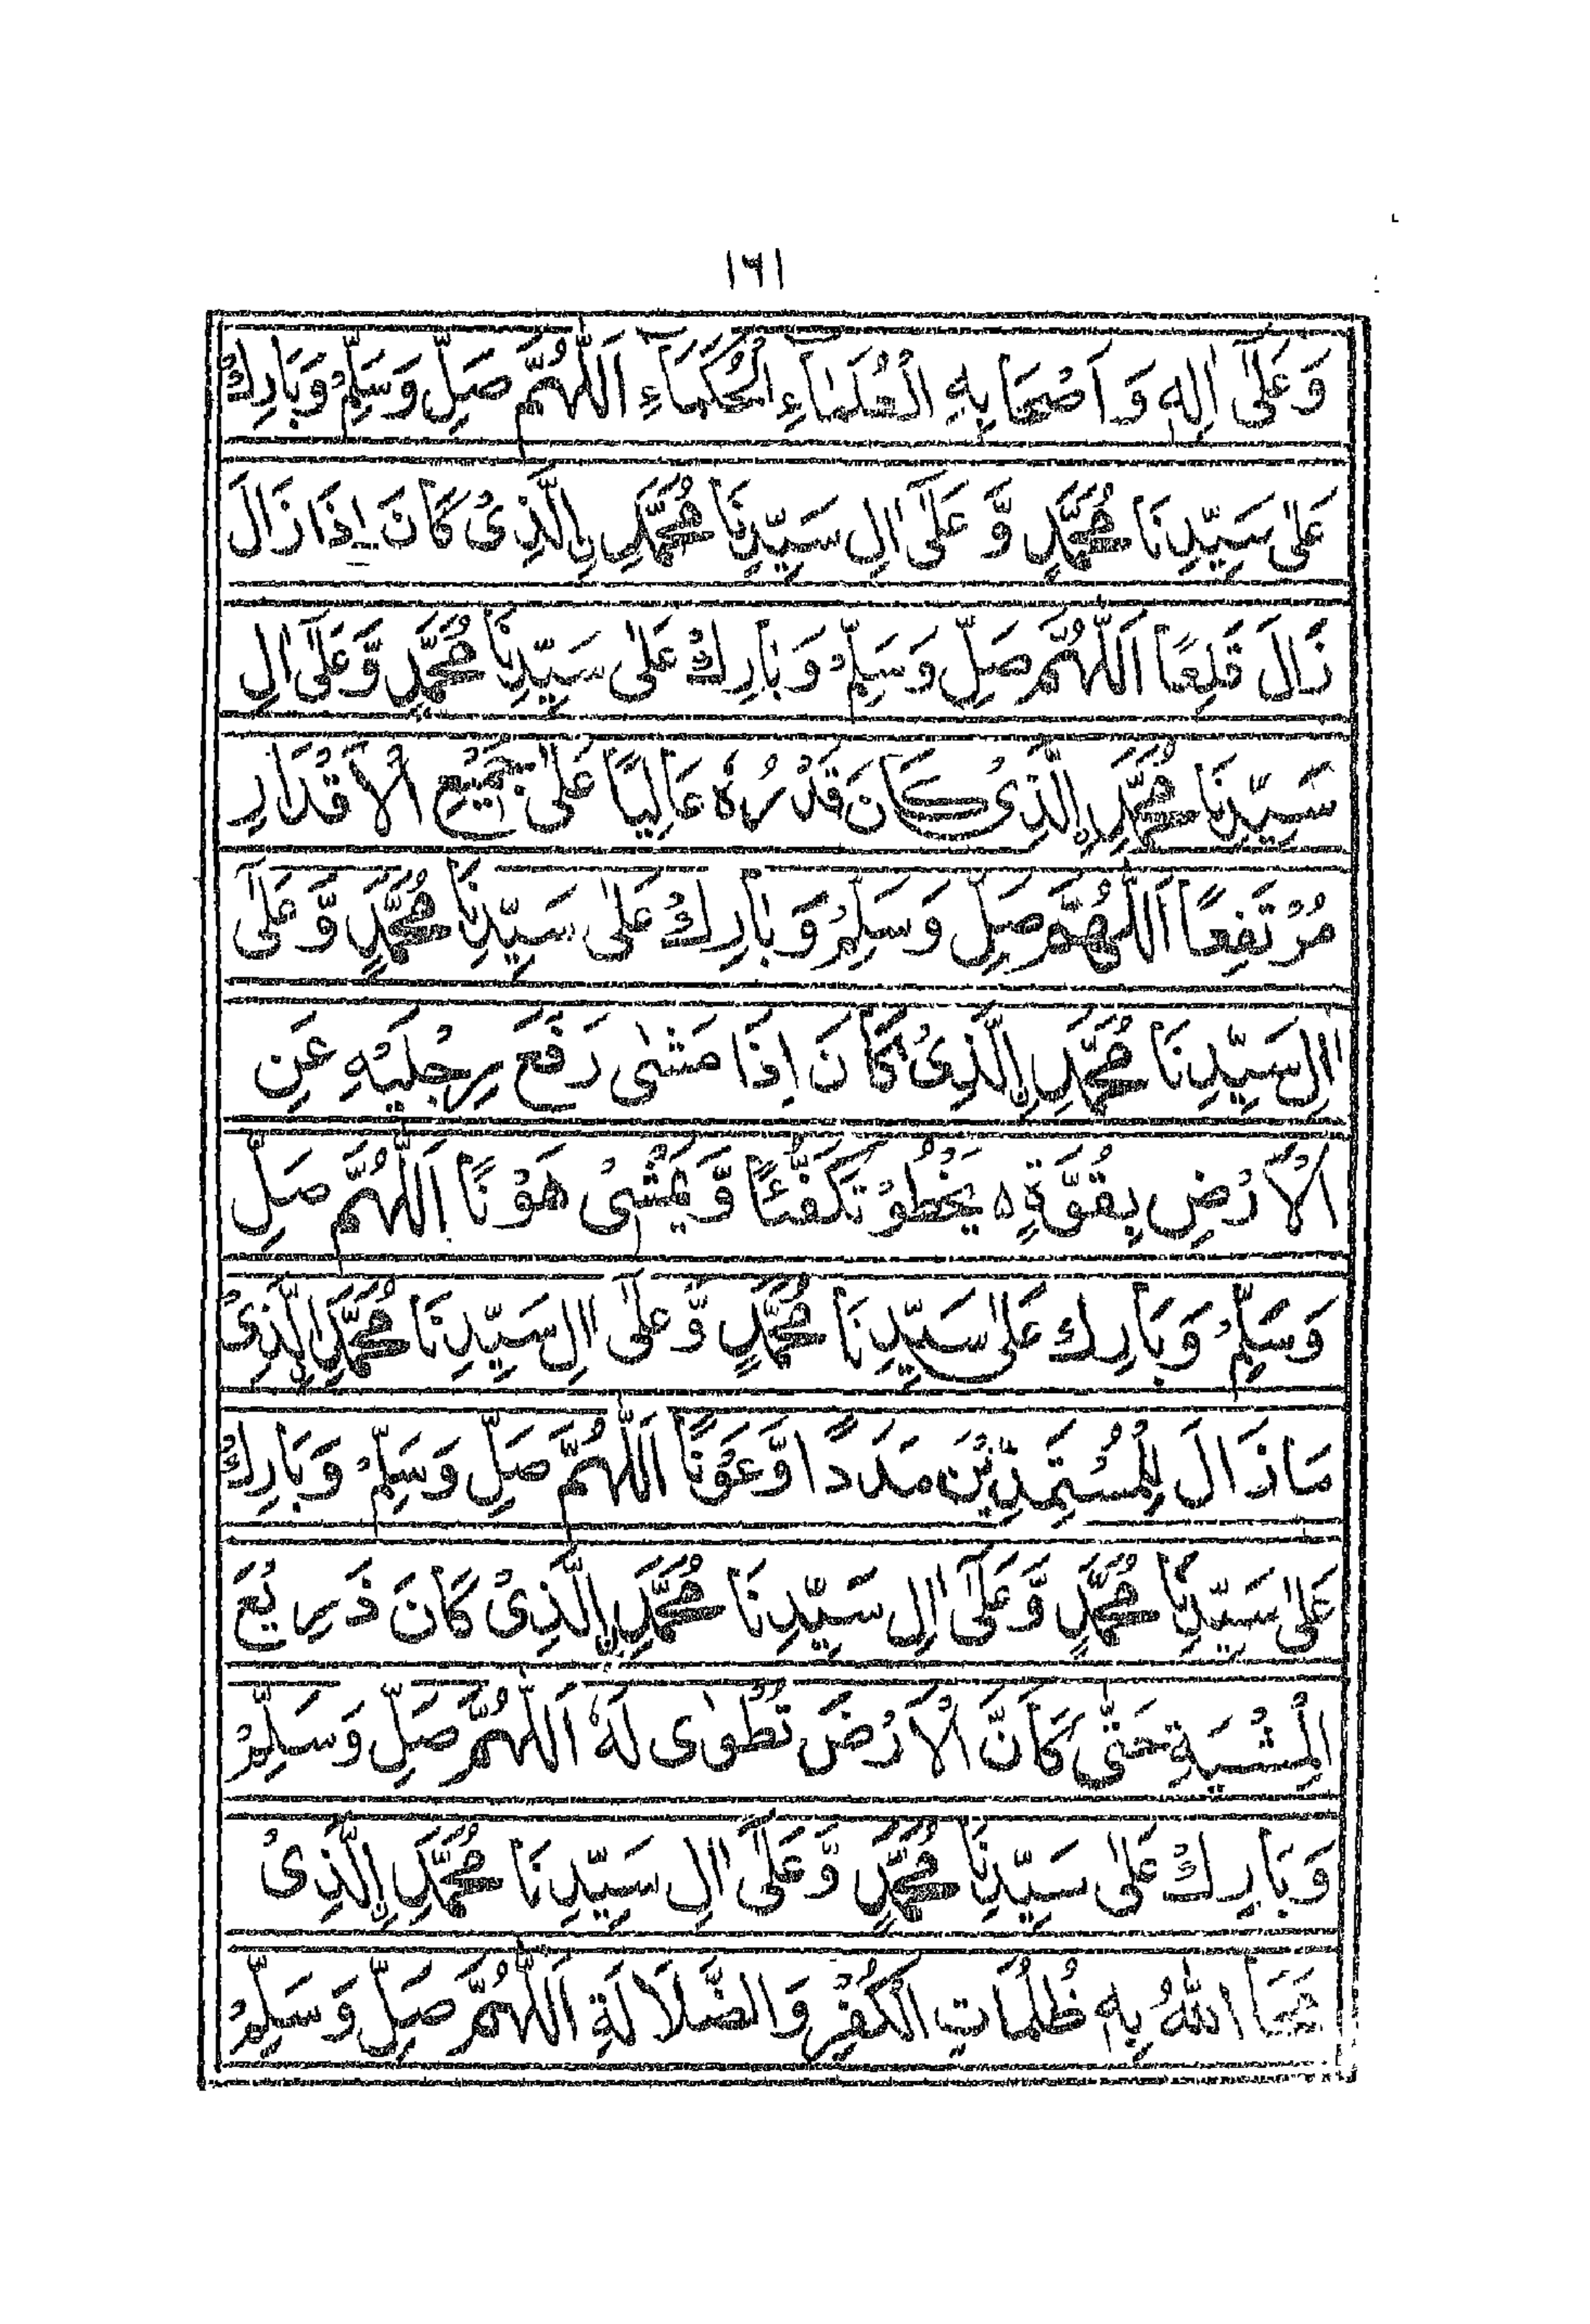 ۱۶۱
وَعَلٰٓى اٰلِهٖ وَ اَصْحَابِهِ الْعُلَمَاءِ الْحُكَمَاءِ اَللّٰهُمَّ صَلِّ وَسَلِّمْ وَبَارِكْ
عَلٰى سَيِّدِنَا مُحَمَّدٍ وَّ عَلٰٓى اٰلِ سَيِّدِنَا مُحَمَّدِ ࣙالَّذِىْ كَانَ اِذَا زَالَ
زَالَ قَلِعًا اَللّٰهُمَّ صَلِّ وَسَلِّمْ وَ بَارِكْ عَلٰى سَيِّدِنَا مُحَمَّدٍ وَّعَلٰٓى اٰلِ
سَيِّدِنَا مُحَمَّدِ نِالَّذِىْ كَانَ قَدْرُهٗ عَالِيًا عَلٰى جَمِيْعِ الْاَقْدَارِ
مُرْتَفِعًا اَللّٰهُمَّ صَلِّ وَسَلِّمْ وَبَارِكْ عَلٰى سَيِّدِنَا مُحَمَّدٍ وَّعَلٰٓى
اٰلِ سَيِّدِنَا مُحَمَّدِ نِالَّذِىْ كَانَ اِذَا مَشٰى رَفَعَ رِجْلَيْهِ عَنِ
الْاَرْضِ بِقُوَّةٍ ه يَخْطُوْ تَكَفُّئًا وَّيَمْشِىْ هَوْنًا اَللّٰهُمَّ صَلِّ
وَسَلِّمْ وَبَارِك عَلٰى سَيِّدِنَا مُحَمَّدٍ وَّعَلٰٓى اٰلِ سَيِّدِنَا مُحَمَّدِ نِالَّذِىْ
مَازَالَ لِلْمُسْتَمِدِّيْنَ مَدَدًا وَّعَوْنًا اَللّٰهُمَّ صَلِّ وَسَلِّمْ وَبَارِكْ
عَلٰى سَيِّدِنَا مُحَمَّدٍ وَّعَلٰٓى اٰلِ سَيِّدِنَا مُحَمَّدِ نِالَّذِىْ كَانَ ذَرِيْعَ
الْمِشْيَةِ حَتّٰى كَاَنَّ الْاَرْضَ تُطْوٰى لَهٗ اَللّٰهُمَّ صَلِّ وَسَلِّمْ
وَبَارِكْ عَلٰى سَيِّدِنَا مُحَمَّدٍ وَّعَلٰٓى اٰلِ سَيِّدِنَا مُحَمَّدِ نِالَّذِىْ
مَحَا اللّٰهُ بِهٖ ظُلُمَاتِ الْكُفْرِ وَالضَّلَالَةِ اَللّٰهُمَّ صَلِّ وَسَلِّمْ